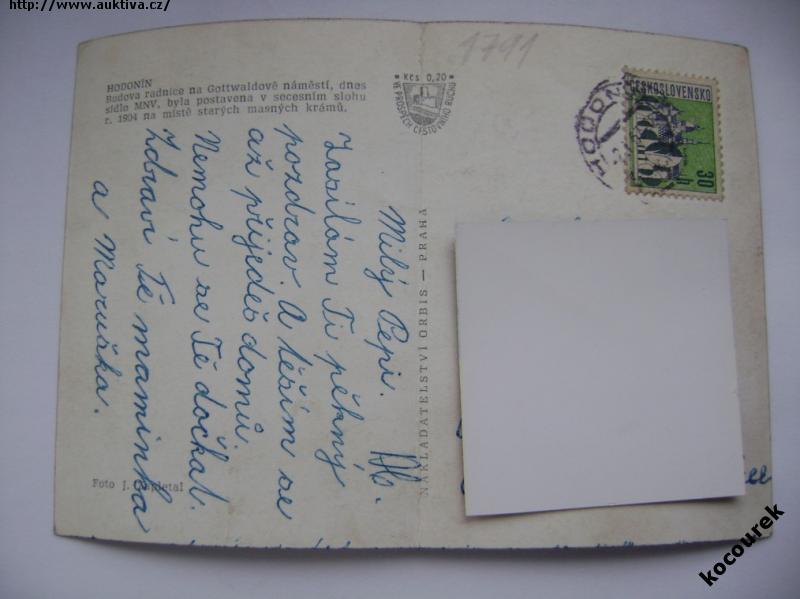 http://www.auktiva.cz/
HODONÍN
Budova radnice na Gottwaldově náměstí, dnes
sídlo MNV, byla postavena v secesním slohu
r. 1904 na místě starých masných krámů.
Kčs 0,20
VE PROSPĚCH CESTOVNÍHO RUCHU
1791
ČESKOSLOVENSKO
30 h
NAKLADATELSTVÍ ORBIS — PRAHA
Milý Pepi.
Zasílám Ti pěkný
pozdrav. A těším se
až přijedeš domů.
Nemohu se Tě dočkat.
Zdraví Tě maminka
a Maruška.
Foto J.
kocourek